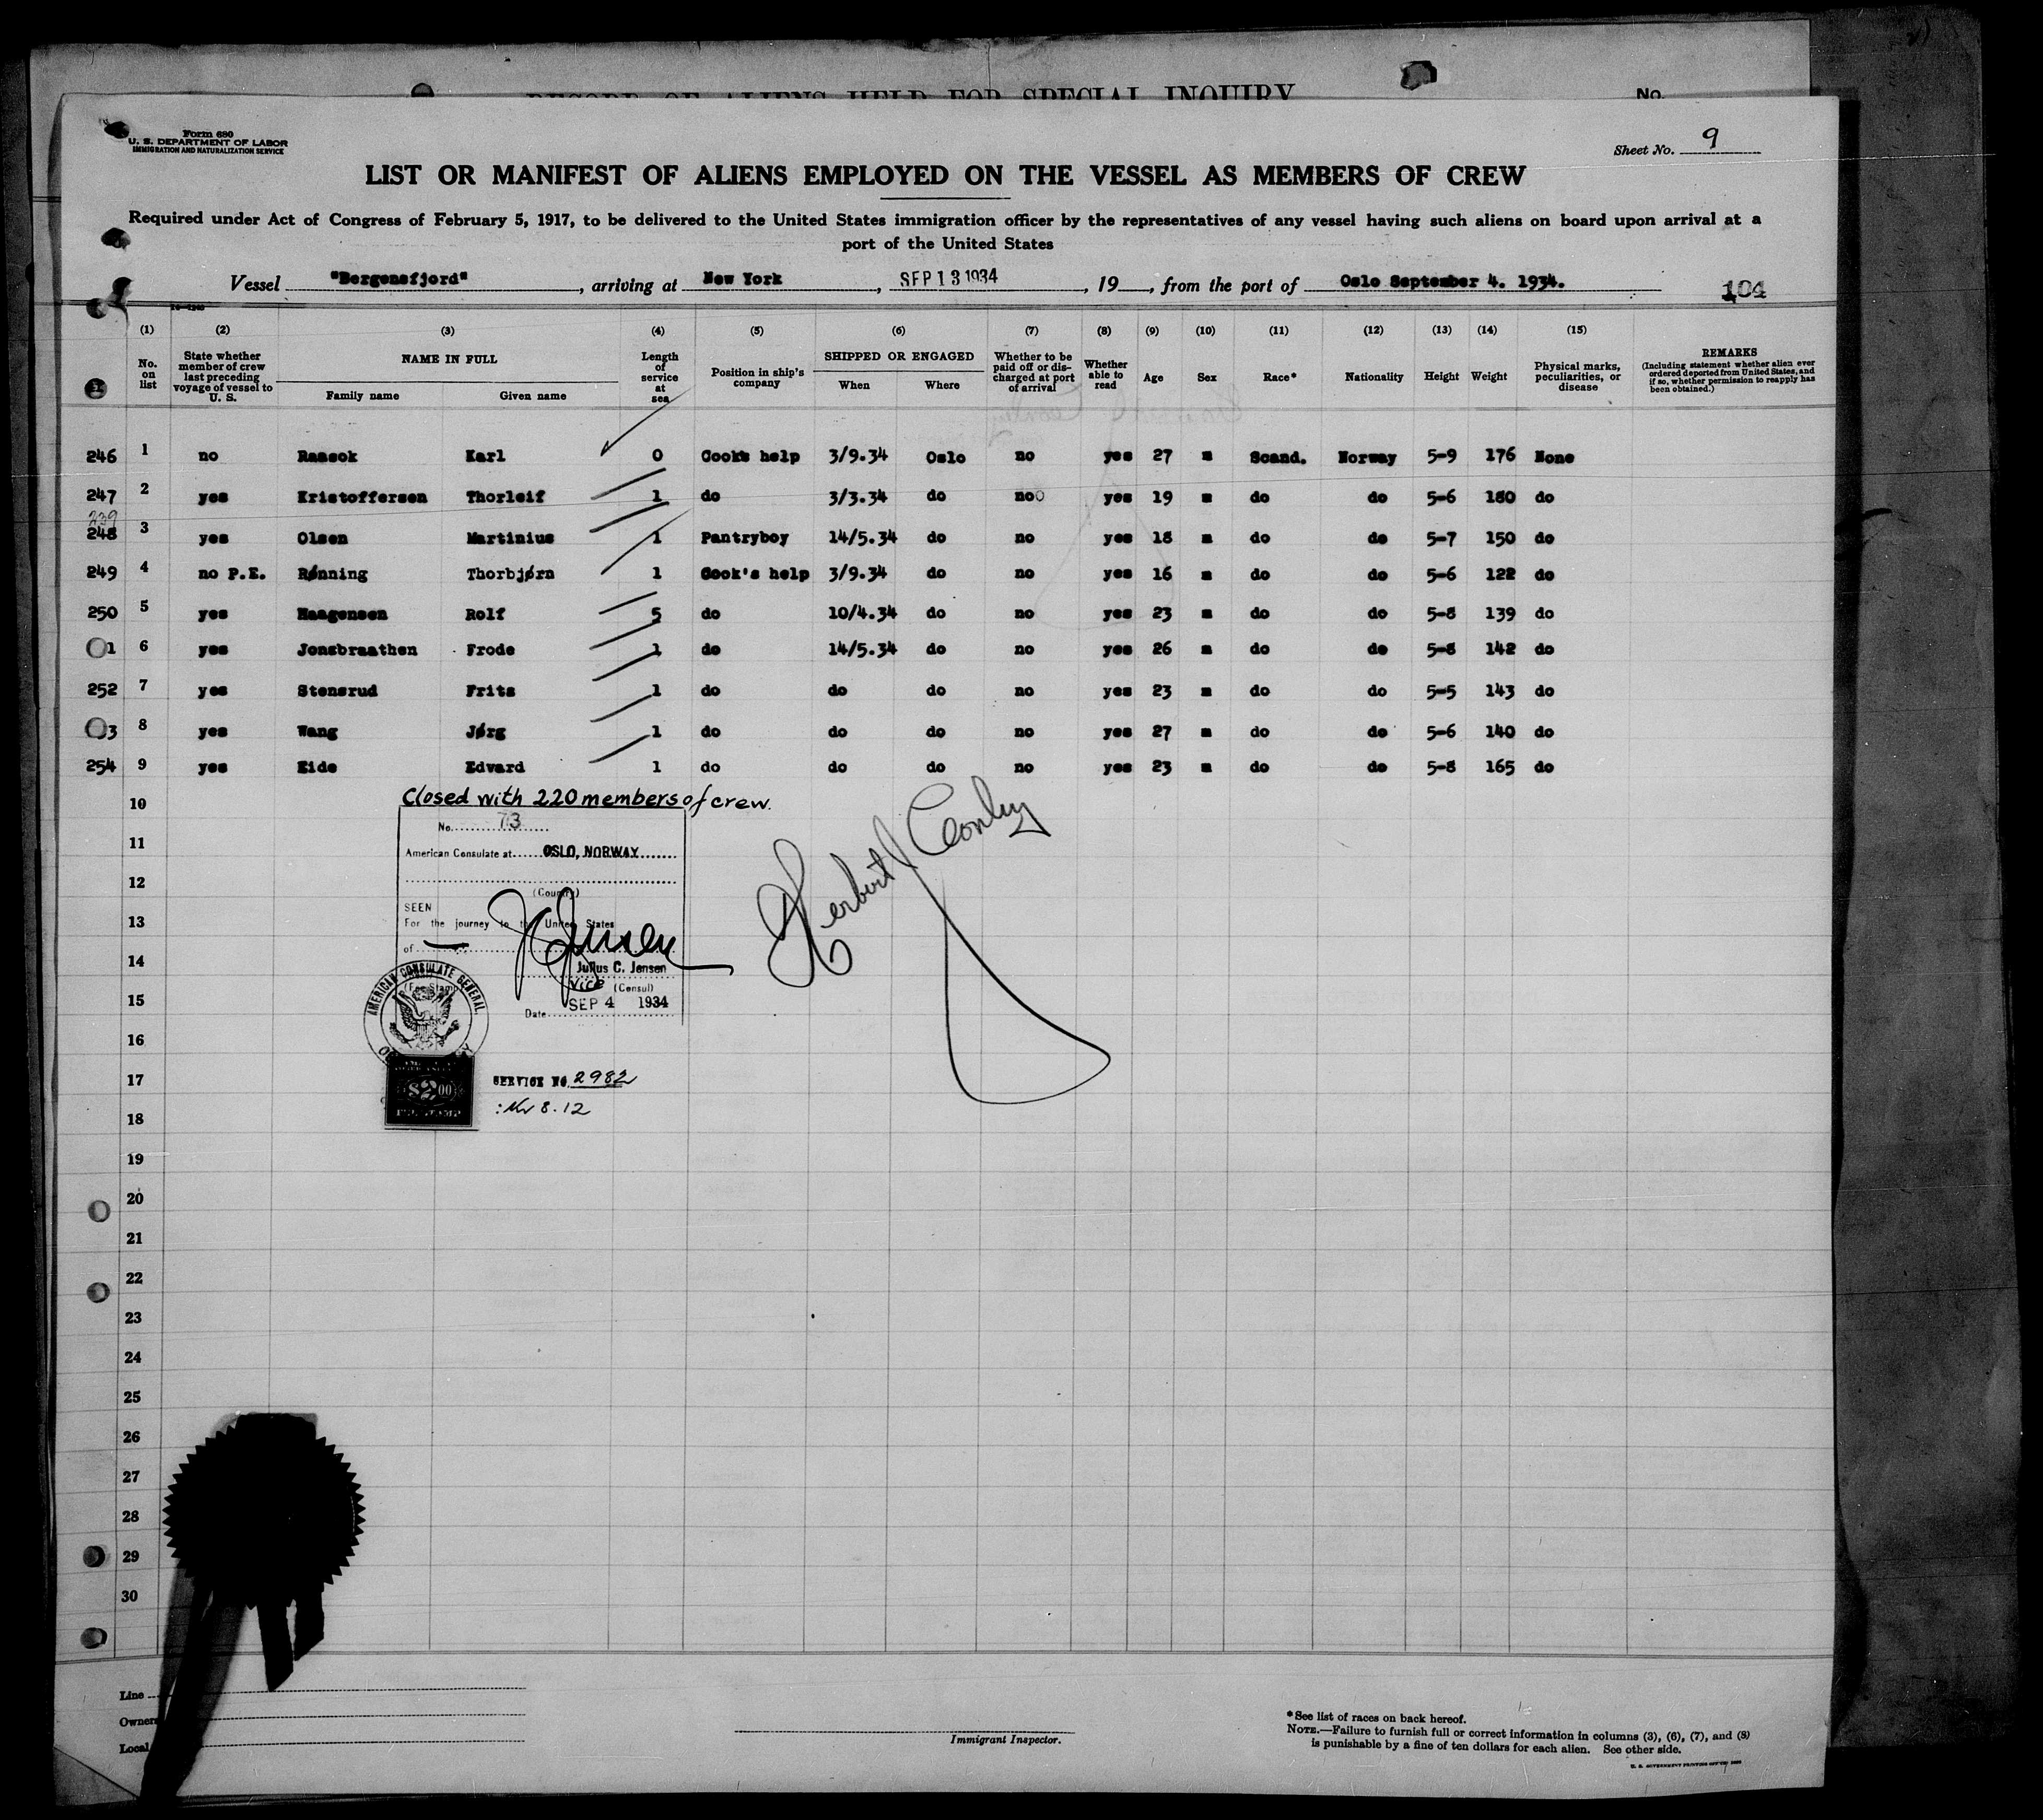 RECORD OF ALIENS HELD FOR SPECIAL INQUIRY
No.
Form 680
U. S. DEPARTMENT OF LABOR
IMMIGRATION AND NATURALIZATION SERVICE
Sheet No. 9
LIST OR MANIFEST OF ALIENS EMPLOYED ON THE VESSEL AS MEMBERS OF CREW
Required under Act of Congress of February 5, 1917, to be delivered to the United States immigration officer by the representatives of any vessel having such aliens on board upon arrival at a
port of the United States
Vessel "Bergensfjord", arriving at New York, SEP 13 1934, 19, from the port of Oslo September 4. 1934.
104
(1) (2) (3) (4) (5) (6) (7) (8) (9) (10) (11) (12) (13) (14) (15)
No. on list
State whether member of crew last preceding voyage of vessel to U. S.
NAME IN FULL
Family name Given name
Length of service at sea
Position in ship's company
SHIPPED OR ENGAGED
When Where
Whether to be paid off or discharged at port of arrival
Whether able to read
Age
Sex
Race*
Nationality
Height
Weight
Physical marks, peculiarities, or disease
REMARKS
(Including statement whether alien ever ordered deported from United States, and if so, whether permission to reapply has been obtained.)
246 1 no Raasok Karl 0 Cook's help 3/9.34 Oslo no yes 27 m Scand. Norway 5-9 176 None
247 2 yes Kristoffersen Thorleif 1 do 3/3.34 do no yes 19 m do do 5-6 180 do
239
248 3 yes Olsen Martinius 1 Pantryboy 14/5.34 do no yes 18 m do do 5-7 150 do
249 4 no P.E. Rønning Thorbjørn 1 Cook's help 3/9.34 do no yes 16 m do do 5-6 122 do
250 5 yes Haagensen Rolf 5 do 10/4.34 do no yes 23 m do do 5-8 139 do
1 6 yes Jonsbraathen Frode 1 do 14/5.34 do no yes 26 m do do 5-8 142 do
252 7 yes Stensrud Frits 1 do do do no yes 23 m do do 5-5 143 do
3 8 yes Wang Jørg 1 do do do no yes 27 m do do 5-6 140 do
254 9 yes Eide Edvard 1 do do do no yes 23 m do do 5-8 165 do
Closed with 220 members of crew.
10
11
12
13
14
15
16
17
18
19
20
21
22
23
24
25
26
27
28
29
30
No. 73
American Consulate at OSLO, NORWAY
(Country)
SEEN
For the journey to the United States
of
Julius C. Jensen
Vice (Consul)
(Fee Stamp)
Date SEP 4 1934
AMERICAN CONSULATE GENERAL
$2.00
SERVICE NO. 2982
8.12
Herbert J Conley
Line
Owners
Local
Immigrant Inspector.
*See list of races on back hereof.
NOTE.—Failure to furnish full or correct information in columns (3), (6), (7), and (8)
is punishable by a fine of ten dollars for each alien. See other side.